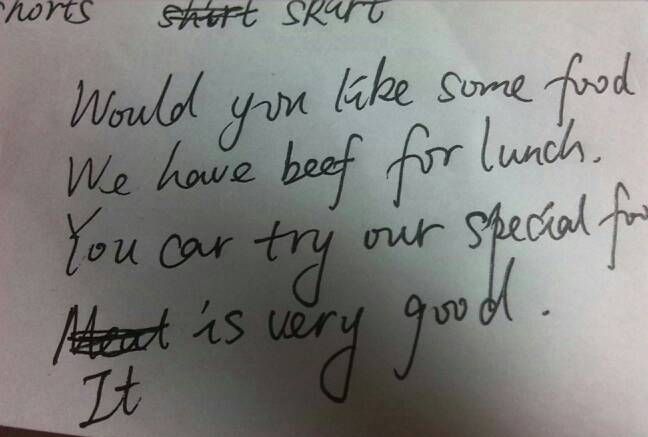 horts shirt skart
Would you like some food
We have beef for lunch.
You car try our special foo
Meat is very good.
It